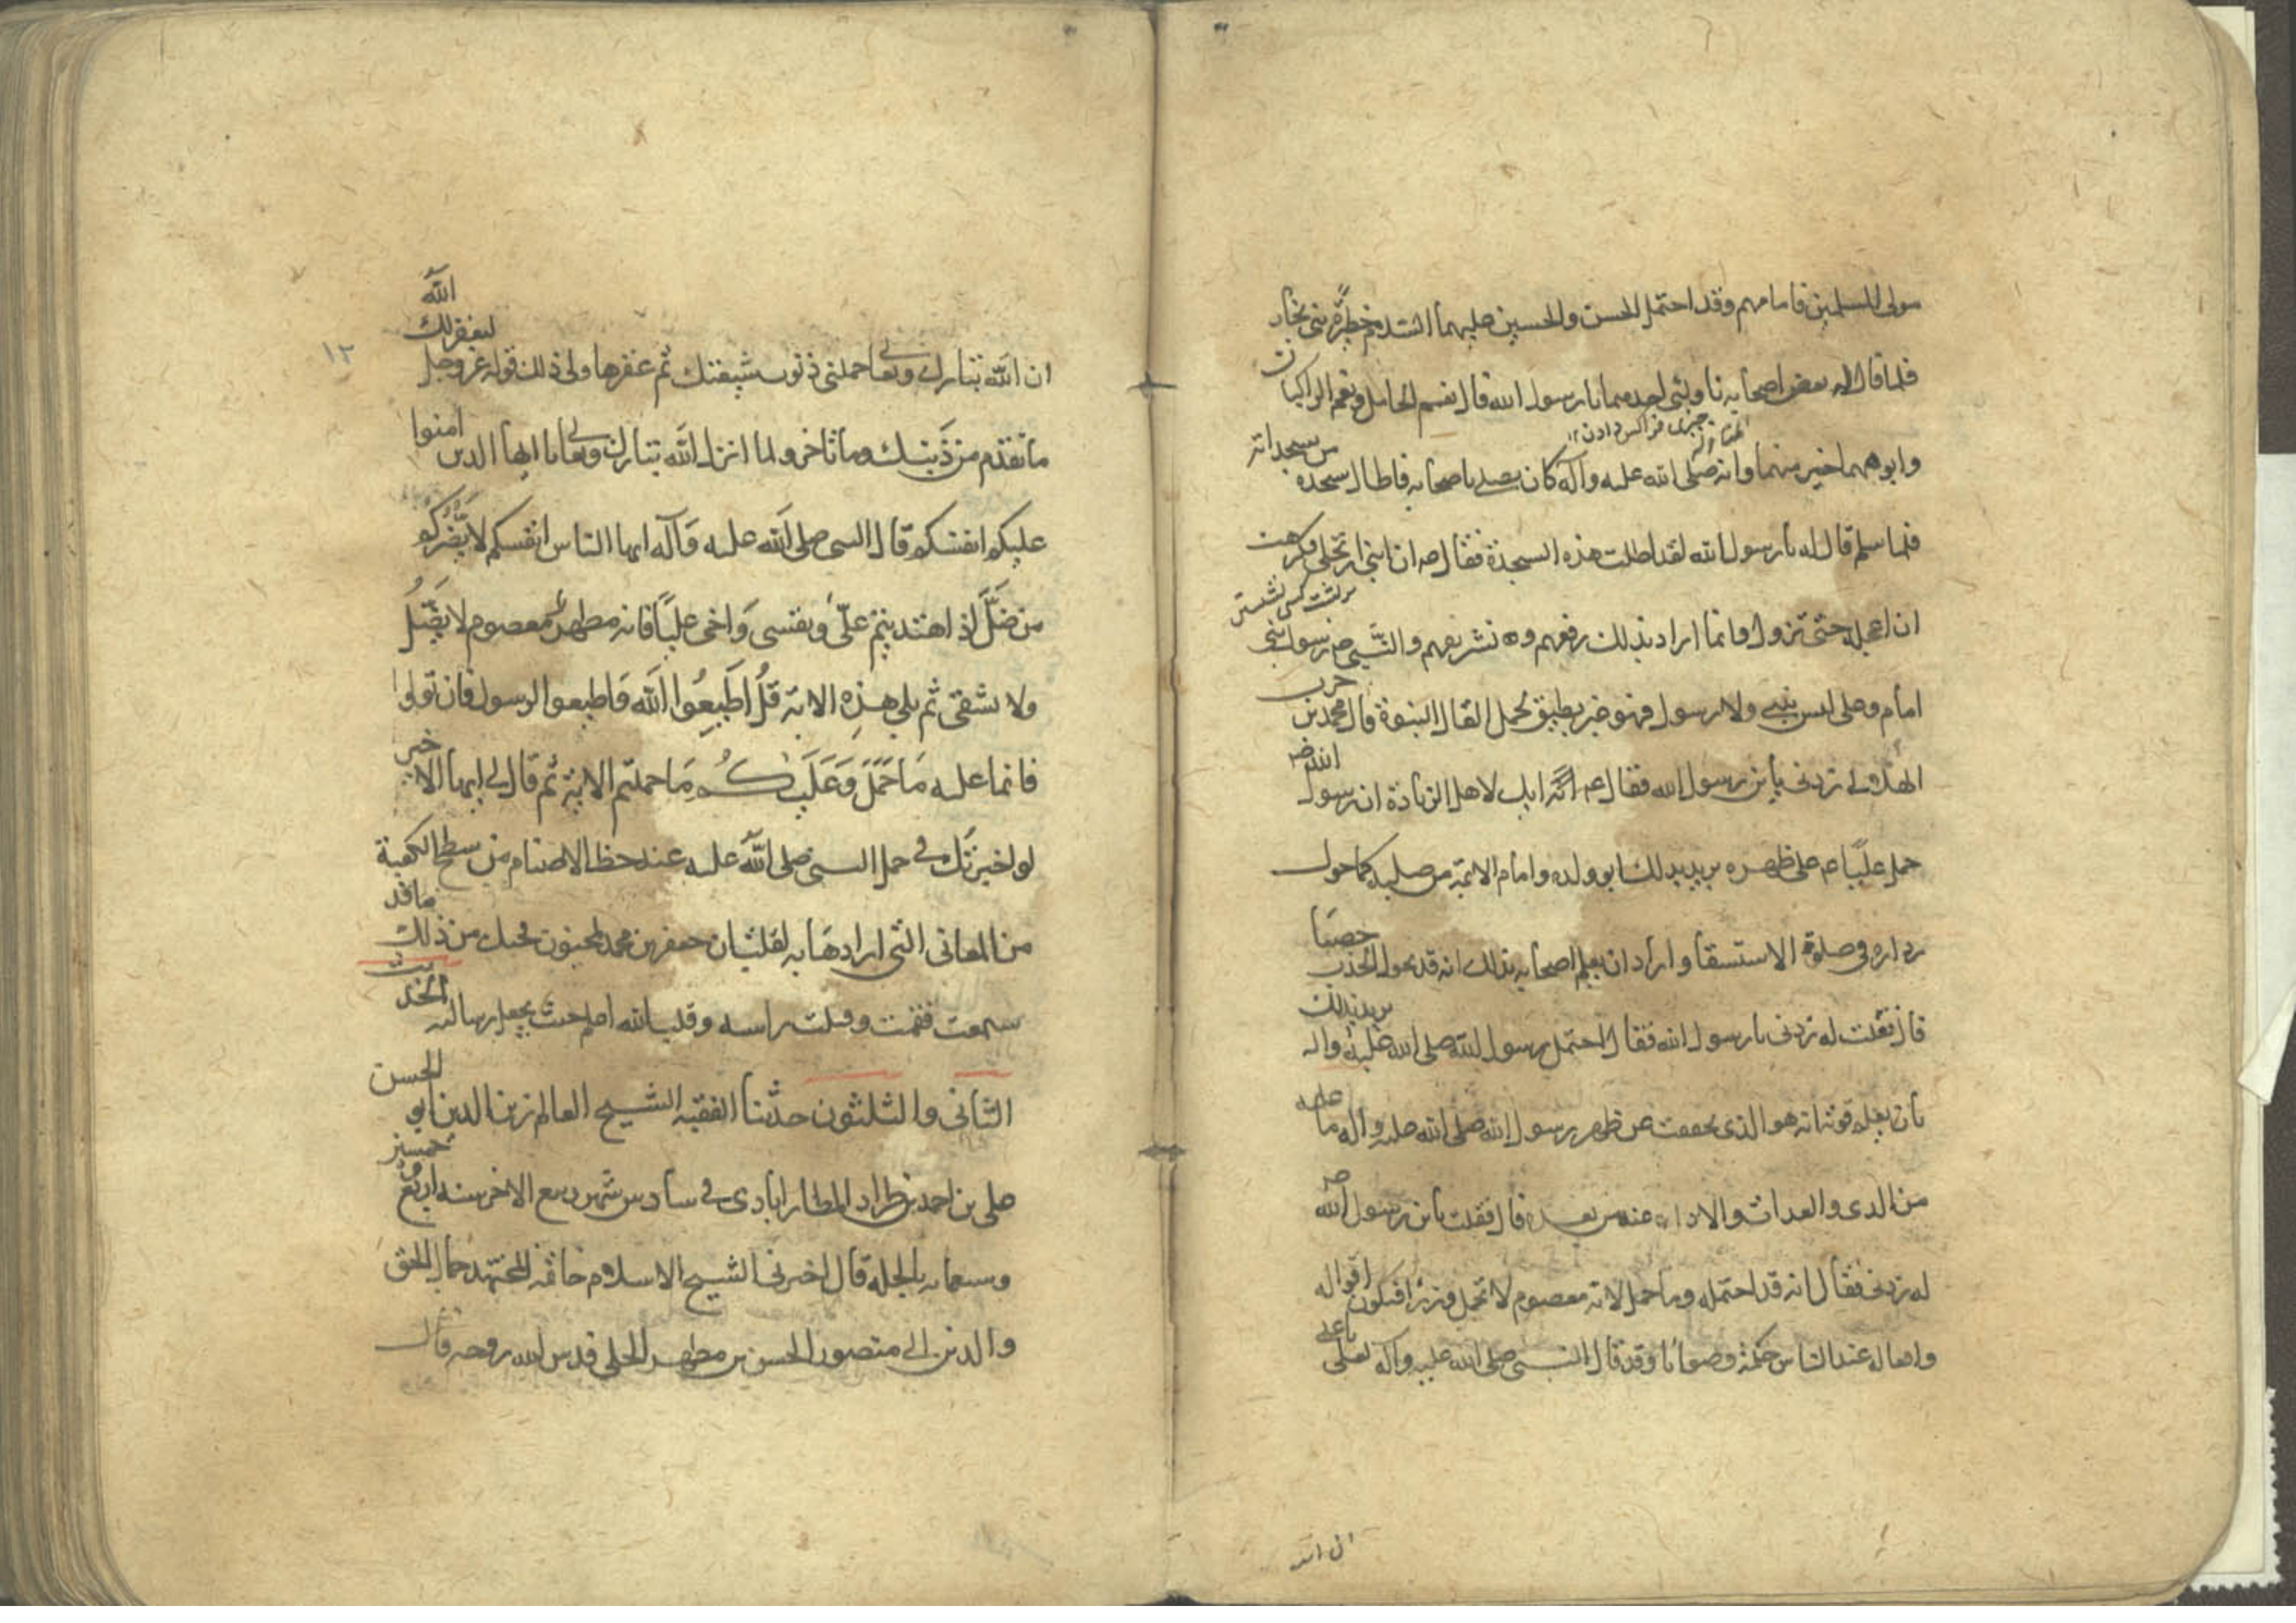 مولى المسلمين فامامهم وقد احتمل الحسن والحسين عليهما السلام من حظيرة بنى نجار
فلما قال له بعض اصحابه ناولنى احدهما يا رسول الله قال نعم الحامل ونعم الراكبان
چيزى فرا كس دادن ١٢
وابوهما خير منهما وانه صلى الله عليه وآله كان يصلى باصحابه فاطال سجدة من سجداته
فلما سلم قال له يا رسول الله لقد اطلت هذه السجدة فقال ص ان ابنى ارتحلنى فكرهت
بر پشت كسى نشستن
ان اعجله حتى نزول وانما اراد بذلك رفعهم وتشريفهم والنبى ص رسول بنى
امام وعلى ليس بنبى ولا رسول فهو غير مطيق لحمل اثقال النبوة قال محمد بن حرب
الهلالى زدنى يا بن رسول الله فقال ع انك اهل لاهل الزيادة ان رسول الله ص
حمل عليّا ع على ظهره يريد بذلك ابو ولده وامام الائمة من صلبه كما حول
رداءه فى صلوة الاستسقا واراد ان يعلم اصحابه بذلك انه قد تحول الجدب خصبا
قال فقلت له زدنى يا رسول الله فقال احتمل رسول الله صلى الله عليه واله يريد بذلك
بان يعلم قومه انه هو الذى يخفف عن ظهر رسول الله صلى الله عليه واله ما عليه
من الدين والعدات والاداء عنه من بعده قال فقلت يا بن رسول الله ص
له زدنى فقال انه قد احتمله وما حمل لانه معصوم لا تحمل وزرا فتكون اقواله
وافعاله عند الناس حكمة وصوابا وقد قال النبى صلى الله عليه وآله لعلى يا على
ان الله
١٢
ان الله تبارك وتعالى حملنى ذنوب شيعتك ثم غفرها لى وذلك قوله عز وجل ليغفر لك الله
ما تقدم من ذنبك وما تاخر ولما انزل الله تبارك وتعالى يا ايها الذين امنوا
عليكم انفسكم قال النبى صلى الله عليه وآله ايها الناس انفسكم لا يضركم
من ضل اذا اهتديتم علىّ ونفسى واخى عليّا فانه مطهر معصوم لا يضل
ولا يشقى ثم تلى هذه الاية قل اطيعوا الله واطيعوا الرسول فان تولوا
فانما عليه ما حمل وعليكم ما حملتم الاية ثم قال لى ايها الامير
لو اخبرتك فى حمل النبى صلى الله عليه عند حط الاصنام من سطح الكعبة
من المعانى التى ارادها به لقلت ان جعفر بن محمد لمجنون فحسبك من ذلك ما قد
سمعت فقمت وقبلت راسه وقلت الله اعلم حيث يجعل رسالته الحديث
الثانى والثلثون حدّثنا الفقيه الشيخ العالم زين الدين ابو الحسن
على بن احمد بن طراد المطارابادى فى سادس شهر ربيع الاخر سنه اربع وخمسين
وسبعمائه بالحله قال اخبرنا الشيخ الاسلام خاتمه المجتهد جمال الحق
والدين ابى منصور الحسن بن مطهر الحلى قدس الله روحه قال